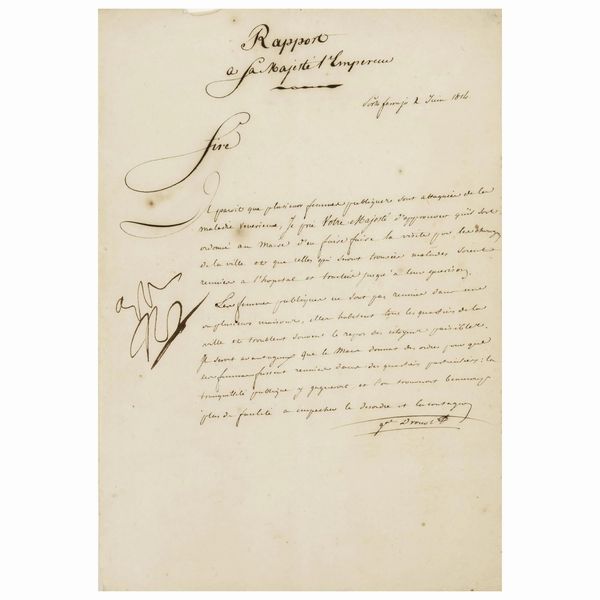 Rapport
a Sa Majesté l'Empereur
Porto ferrajo 2 Juin 1814.
Sire
Il paroit que plusieurs femmes publiques sont attaquées de la
maladie vénérienne, Je prie Votre Majesté d'approuver qu'il soit
ordonné au Maire d'en faire faire la visite par les
de la ville et que celles qui seront trouvées malades soient
reunies a l'hopital et traitées jusqu'a leur guerison.
Les femmes publiques ne sont pas reunies dans une
ou plusieurs maisons, elles habitent tous les quartiers de la
ville et troublent souvent le repos des citoyens paisibles.
Il seroit avantageux que le Maire donnat des ordres pour que
les femmes fussent reunies dans des quartiers particuliers; la
tranquillité publique y gagneroit et l'on trouveroit beaucoup
plus de facilité a empecher le desordre et la contagion
gal Drouot